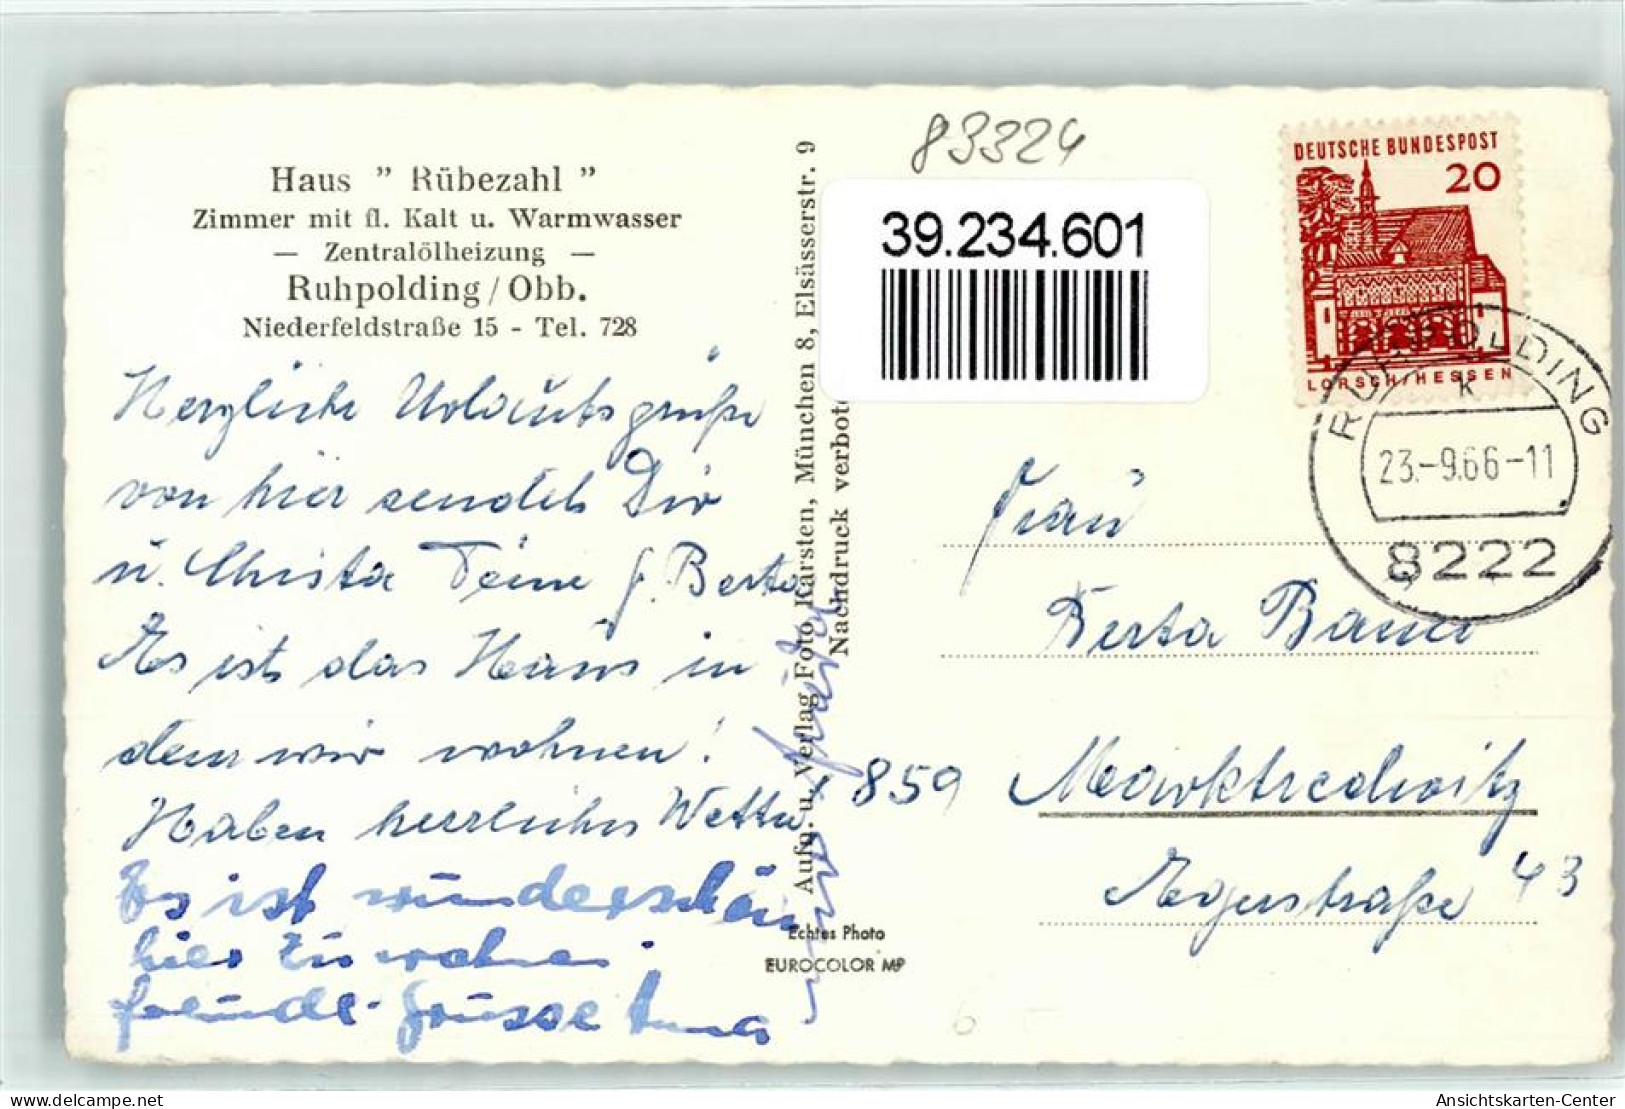 Haus " Rübezahl "
Zimmer mit fl. Kalt u. Warmwasser
— Zentralölheizung —
Ruhpolding / Obb.
Niederfeldstraße 15 - Tel. 728
Herzliche Urlaubsgrüße
von hier sendet Dir
u. Christa Deine Berta
Es ist das Haus in
dem wir wohnen!
Haben herrliches Wetter
Es ist wunderschön
hier zu wohnen.
Grüsse
Aufn. u. Verlag Foto Karsten, München 8, Elsässerstr. 9
Nachdruck verboten
Echtes Photo
EUROCOLOR MP
83324
39.234.601
DEUTSCHE BUNDESPOST
20
LORSCH/HESSEN
RUHPOLDING
k
23.-9.66-11
8222
Frau
Berta Bauer
859 Marktredwitz
Egerstraße 43
www.delcampe.net
Ansichtskarten-Center